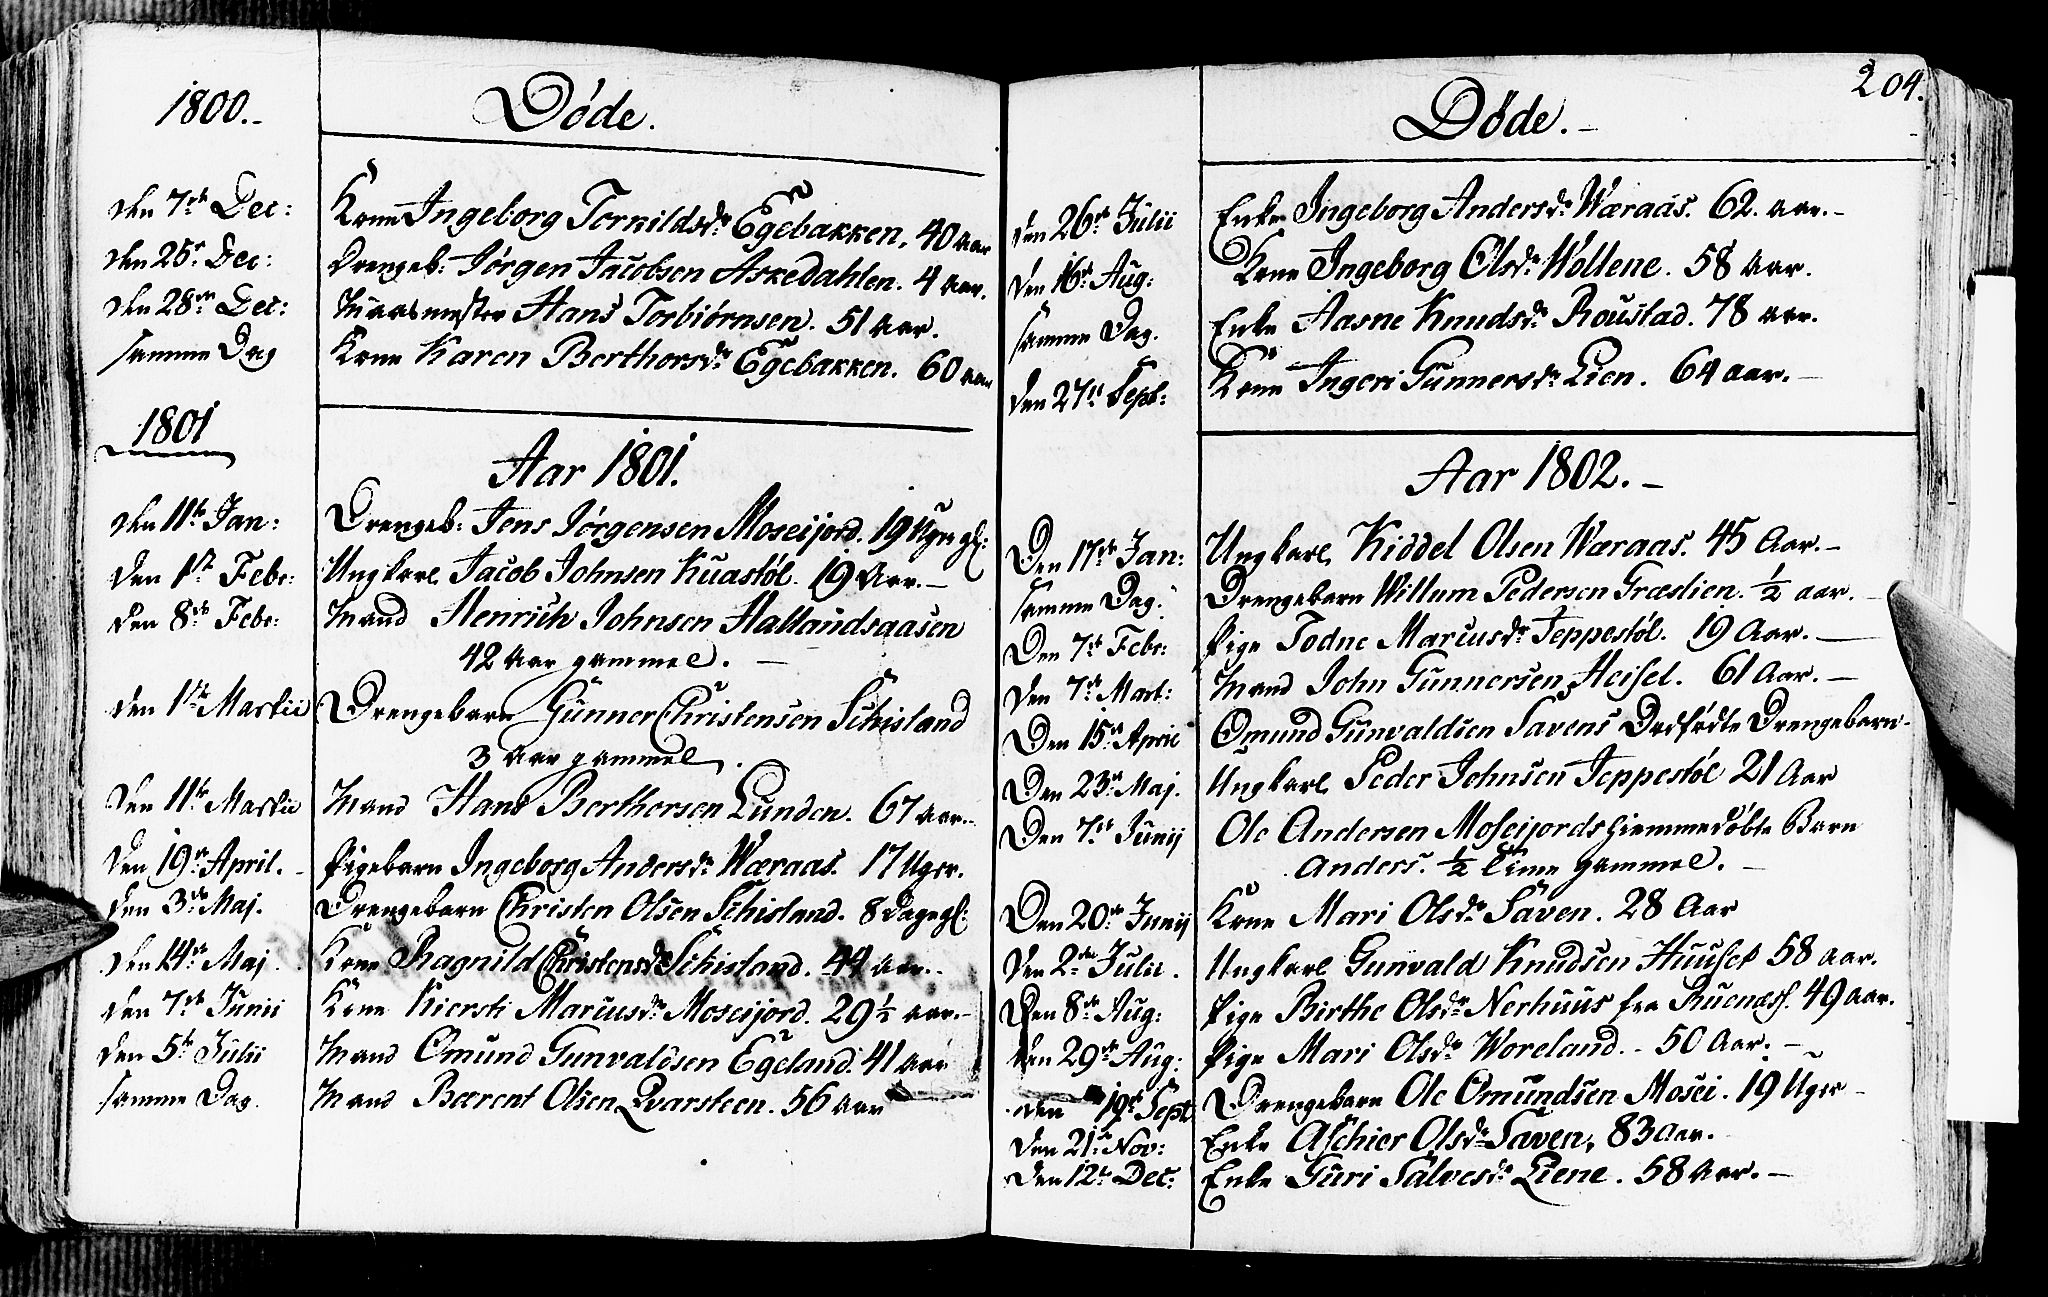 1800.-
Døde.
den 7de Dec: Kone Ingeborg Tornildsdr Egebakken. 40 aar
den 25de Dec: Drengeb: Jørgen Jacobsen Askedahlen. 4 aar.
den 28de Dec: Huusmester Hans Torbiørnsen. 51 aar.
samme Dag Kone Karen Berthorsdr Egebakken. 60 aar
1801
Aar 1801.
den 11te Jan: Drengeb: Jens Jørgensen Moseijord. 19 Uger gl:
den 1ste Febr: Ungkarl Jacob Johnsen Kuastøl. 19 Aar.-
den 8de Febr: Mand Henrich Johnsen Hallandsaasen
42 aar gammel. -
den 1ste Martii Drengebarn Gunner Christensen Schisland
3 aar gammel.
den 11te Martii Mand Hans Berthorsen Lunden. 67 aar.-
den 19de April. Pigebarn Ingeborg Andersdr Wæraas. 17 Uger.
den 3de Maj. Drengebarn Christen Olsen Schisland. 8 Dage gl:
den 14de Maj Kone Ragnild Christensdr Schisland. 44 aar.-
den 7de Junii Kone Kiersti Marcusdr Moseijord. 29 1/2 aar.-
den 5te Julii Mand Omund Gunvaldsen Egeland. 41 aar
samme Dag. Mand Bærent Olsen Qvarsteen. 56 aar
204.
Døde. -
den 26de Julii Enke Ingeborg Andersdr Wæraas. 62. aar.-
den 16de Aug: Kone Ingeborg Olsdr Wollene. 58 aar.
samme Dag. Enke Aasne Knudsdr Roustad. 78 aar.
den 27de Sept: Kone Ingeri Gunnersdr Lien. 64 aar. -
Aar 1802. -
Den 17de Jan: Ungkarl Kiddel Olsen Wæraas. 45 Aar.-
samme Dag. Drengebarn Willum Pedersen Græslien. 1/2 aar.
Den 7de Febr: Pige Todne Marcusdr Jeppestøl. 19 Aar. -
den 7de Mart: Mand John Gunnersen Heisel. 61 Aar. -
Den 15de April Omund Gunvaldsen Savens Dødfødte Drengebarn.
Den 23de Maj. Ungkarl Peder Johnsen Jeppestøl 21 Aar
Den 7de Junij Ole Andersen Moseijords hiemmedøbte Barn
Anders. 1/2 Time gammel. -
Den 20de Junij Kone Mari Olsdr Saven. 28 Aar
den 2den Julii. Ungkarl Gunvald Knudsen Huuset 58 aar.
Den 8de Aug: Pige Birthe Olsdr Nerhuus fra Ruenæss. 49 aar.
den 29de Aug: Pige Mari Olsdr Woreland. - 50 Aar. -
den 19de Sept Drengebarn Ole Omundsen Mosei. 19 Uger -
den 21de Nov: Enke Aschier Olsdr Saven, 83 aar.
den 12te Dec: Enke Guri Salvesdr Liene. 58 aar. -